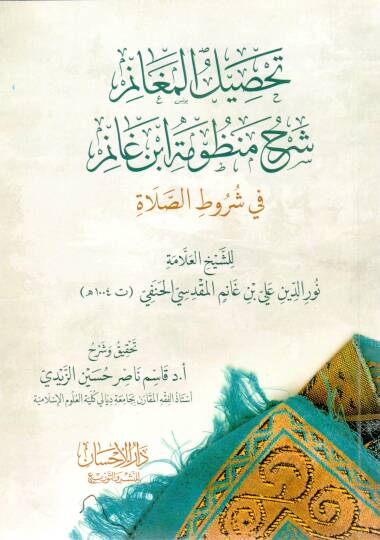 تحصيل المغانم
شرح منظومة ابن غانم
في شروط الصلاة
للشيخ العلامة
نور الدين علي بن غانم المقدسي الحنفي (ت ١٠٠٤هـ)
تحقيق وشرح
أ.د قاسم ناصر حسين الزيدي
أستاذ الفقه المقارن بجامعة ديالى كلية العلوم الإسلامية
دار الإحسان
للنشر والتوزيع